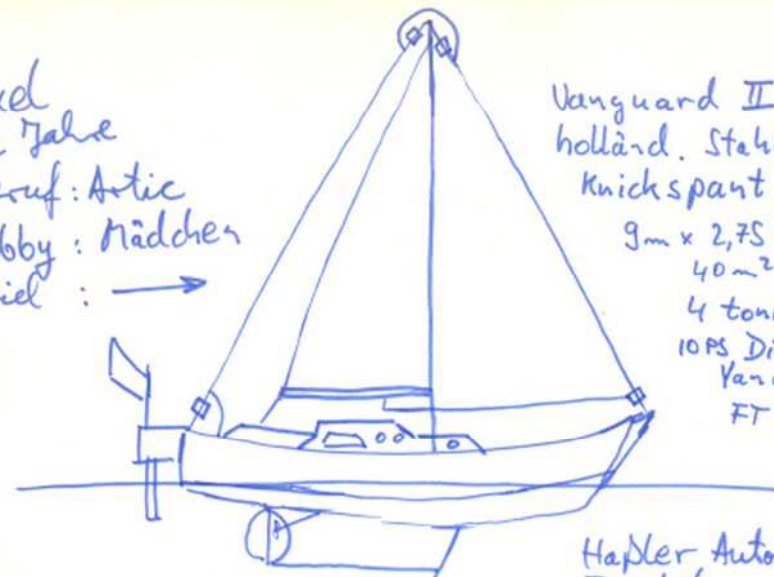 Jahre
Beruf: Artic
Hobby: Mädchen
Ziel :
Vanguard II
holländ. Stahl
Knickspant
9m x 2,75
40 m²
4 tonn
10 PS Di
Yan
FT
Haßler Auto